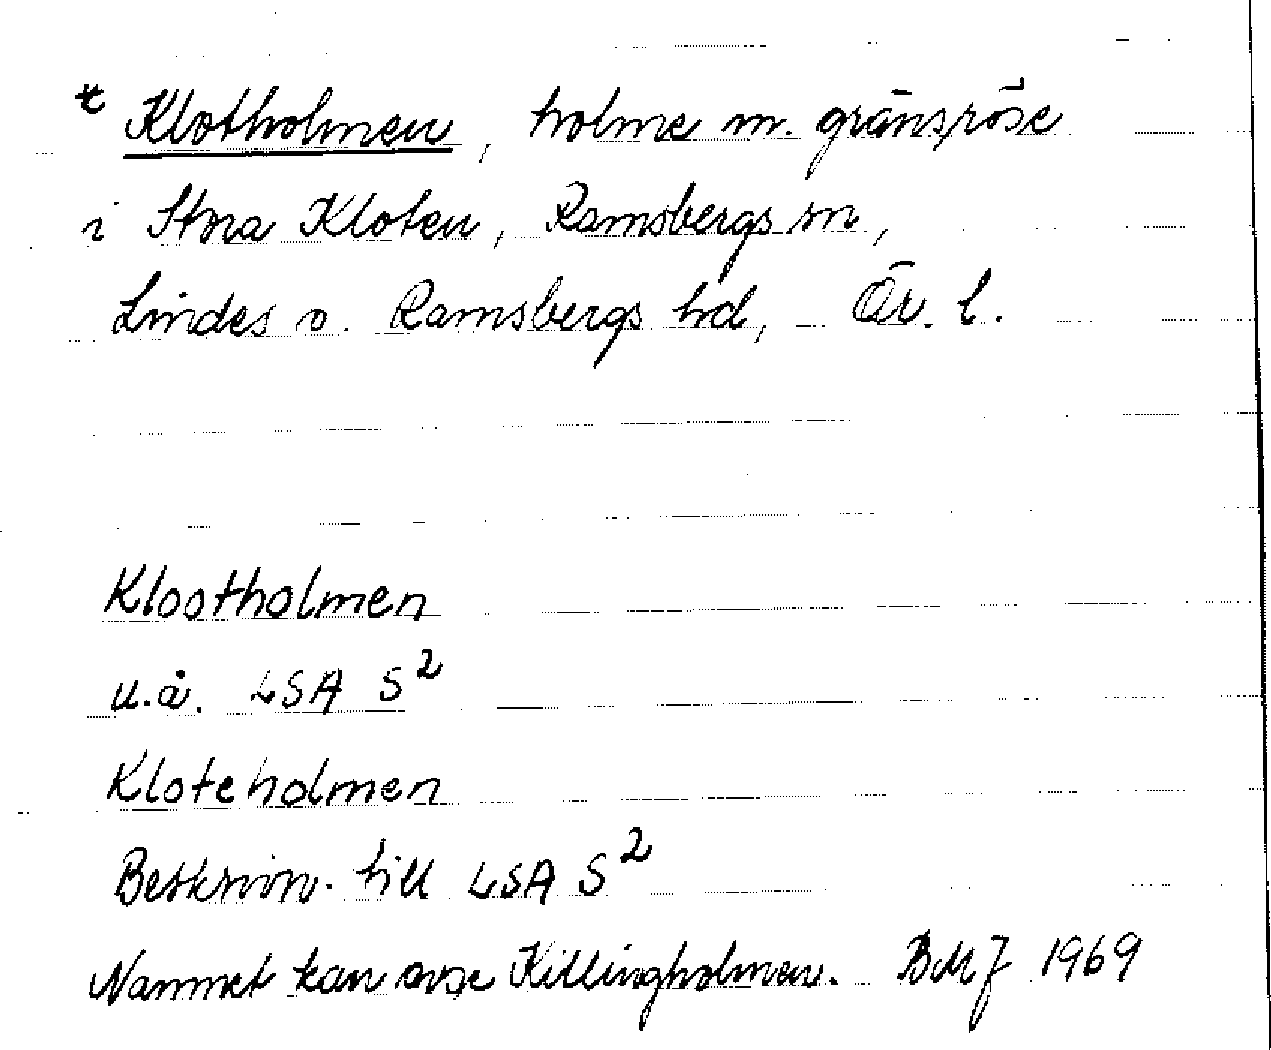 * Klotholmen, holme m. gränsröse
i Stora Kloten, Ramsbergs sn,
Lindes o. Ramsbergs hd, Ör. l.
Klootholmen
u.å. LSA S²
Kloteholmen
Beskrivn. till LSA S²
Namnet kan avse Killingholmen. BMJ 1969